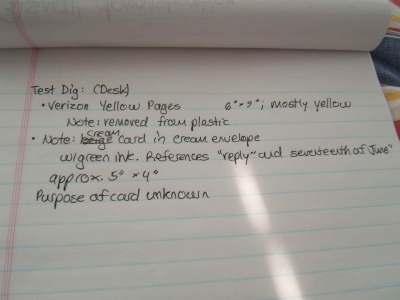 Test Dig: (Desk)
• Verizon Yellow Pages 6" × 9"; mostly yellow
Note: removed from plastic
• Note: cream card in cream envelope
w/green ink. References "reply" and seventeenth of June"
approx. 5" × 4"
Purpose of card unknown